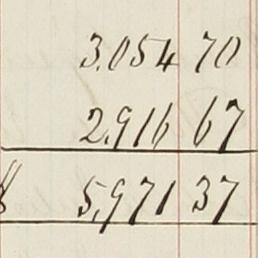 3.054 70
2.916 67
$ 5,971 37